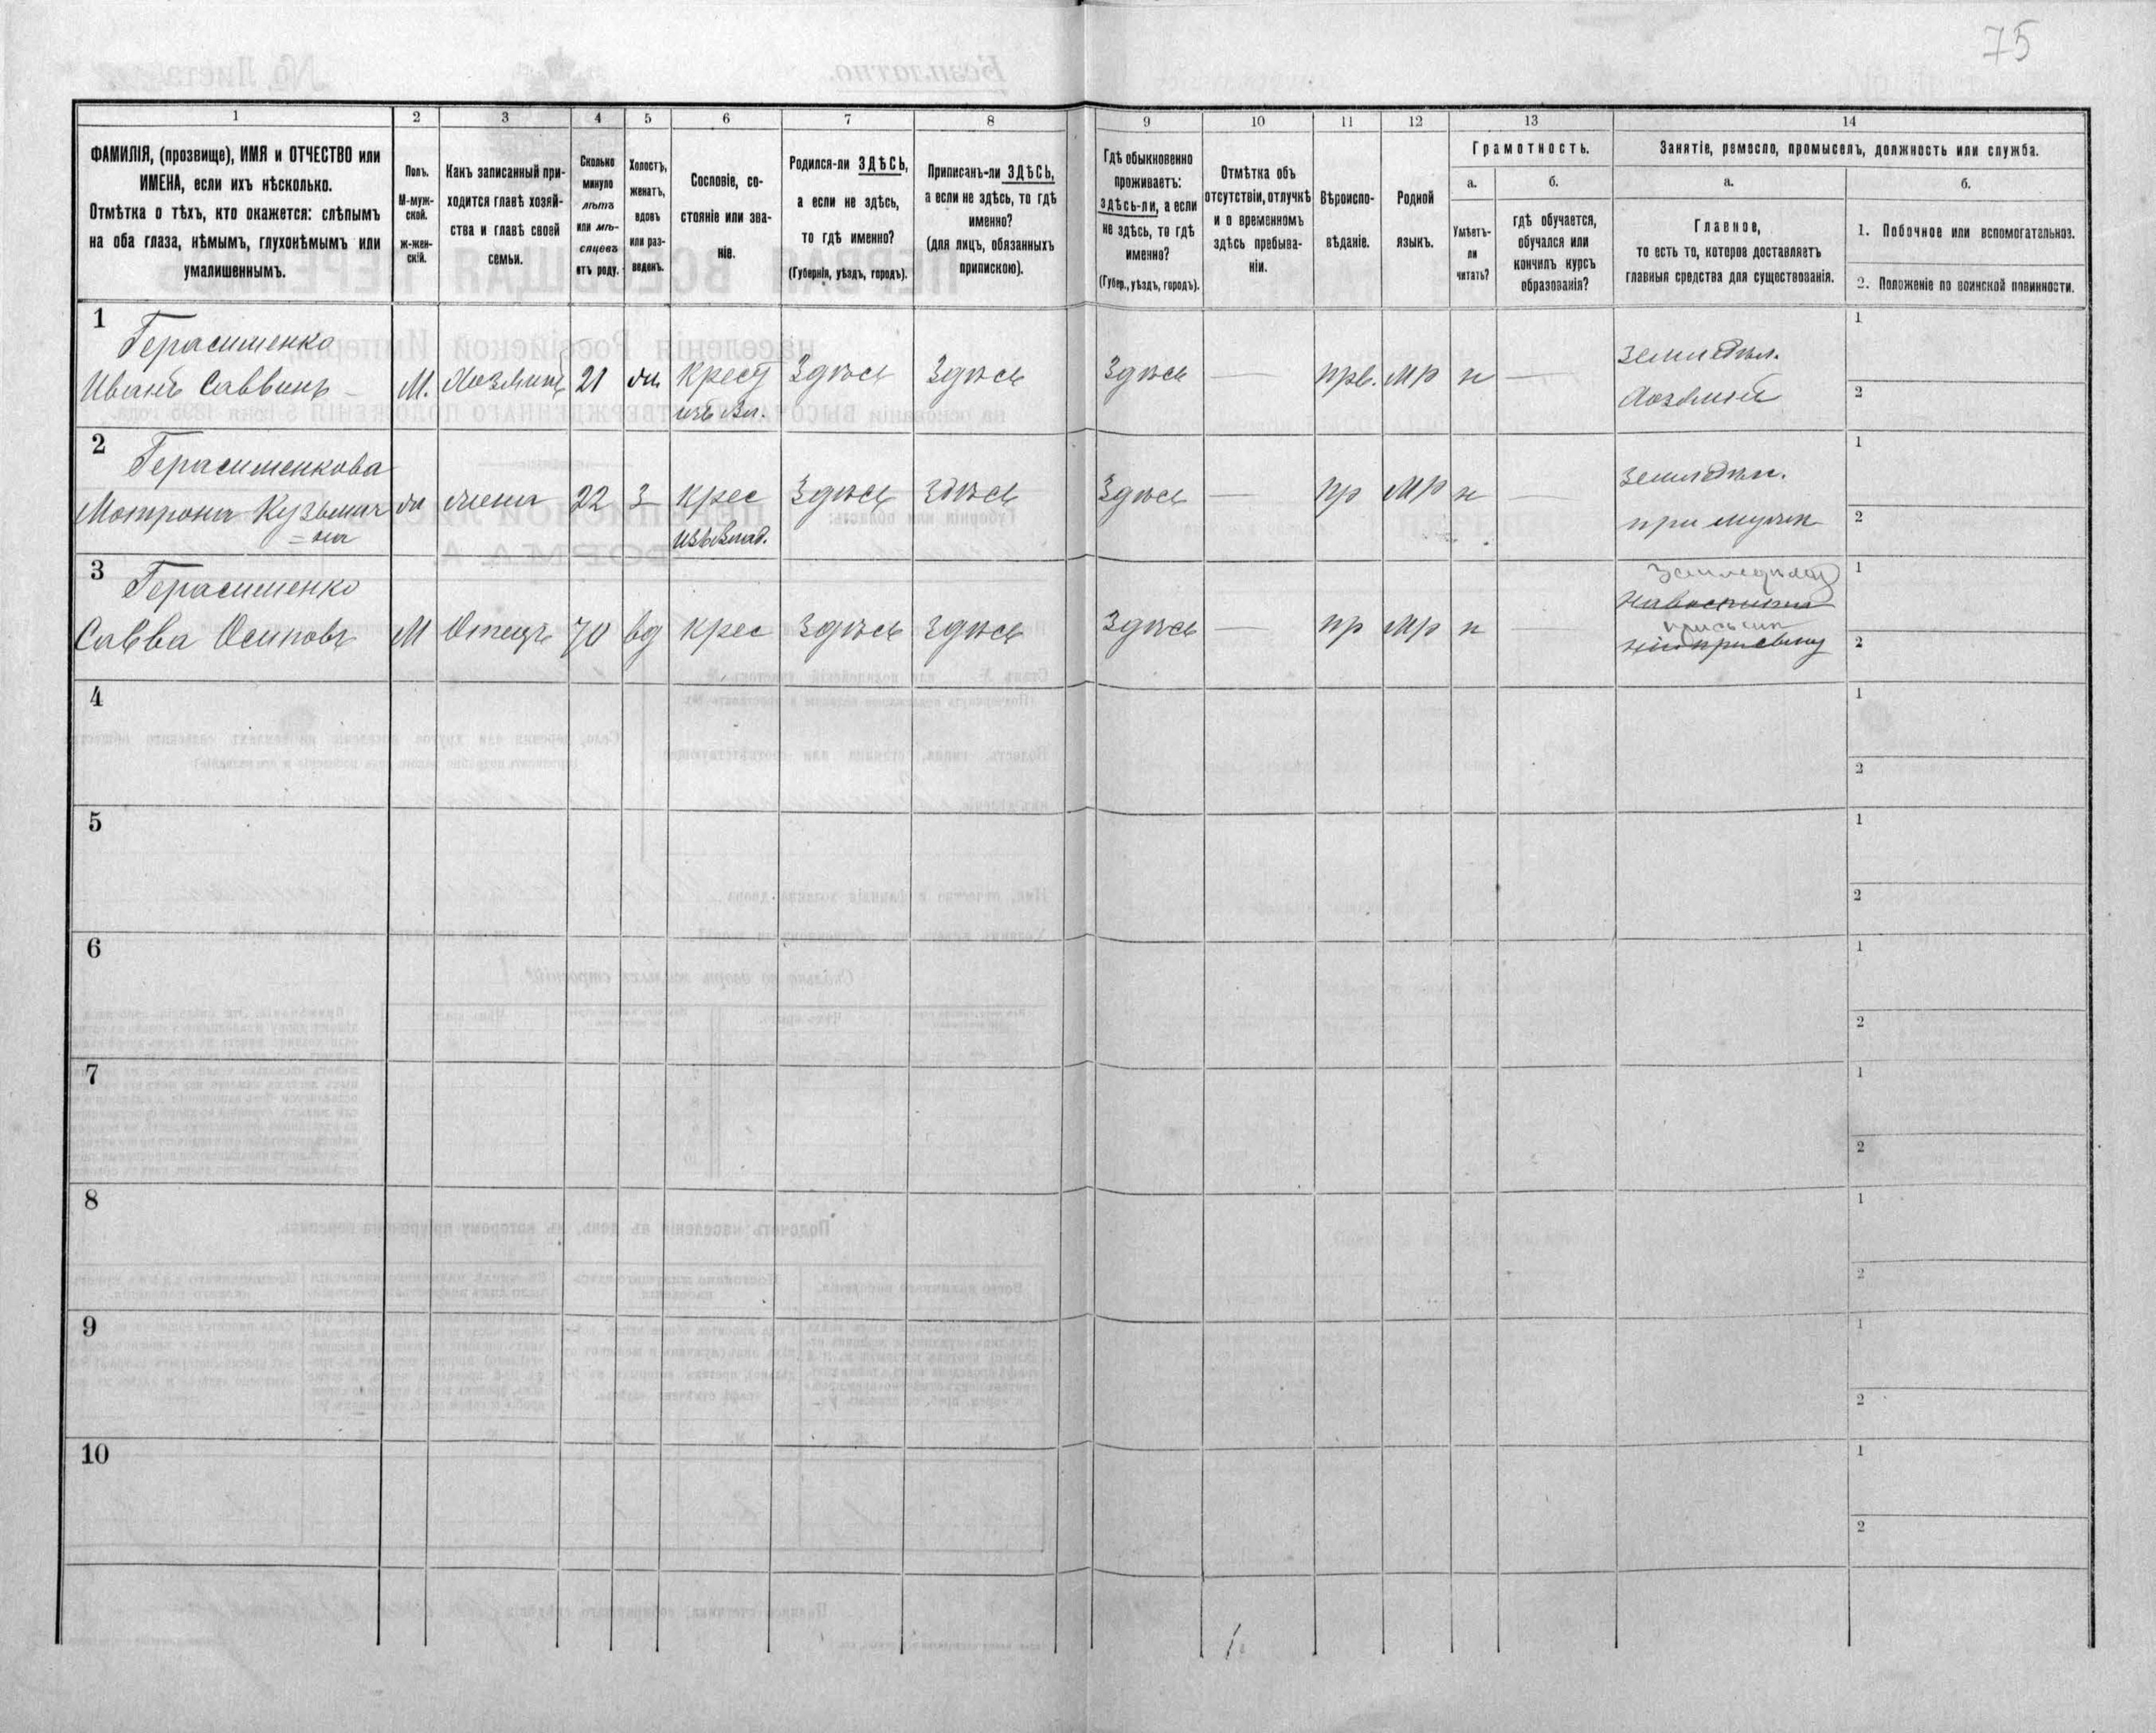 75
1
2
3
4
5
6
7
8
9
10
11
12
13
14
ФАМИЛІЯ, (прозвище), ИМЯ и ОТЧЕСТВО или
ИМЕНА, если ихъ нѣсколько.
Отмѣтка о тѣхъ, кто окажется: слѣпымъ
на оба глаза, нѣмымъ, глухонѣмымъ или
умалишеннымъ.
Полъ.
М-муж-
ской.
ж-жен-
скій.
Какъ записанный при-
ходится главѣ хозяй-
ства и главѣ своей
семьи.
Сколько
минуло
лѣтъ
или мѣ-
сяцевъ
отъ роду.
Холостъ,
женатъ,
вдовъ
или раз-
веденъ.
Сословіе, со-
стояніе или зва-
ніе.
Родился-ли ЗДѢСЬ,
а если не здѣсь,
то гдѣ именно?
(Губернія, уѣздъ, городъ).
Приписанъ-ли ЗДѢСЬ,
а если не здѣсь, то гдѣ
именно?
(для лицъ, обязанныхъ
припискою).
Гдѣ обыкновенно
проживаетъ:
здѣсь-ли, а если
не здѣсь, то гдѣ
именно?
(Губер., уѣздъ, городъ).
Отмѣтка объ
отсутствіи, отлучкѣ
и о временномъ
здѣсь пребыва-
ніи.
Вѣроиспо-
вѣданіе.
Родной
языкъ.
Грамотность.
а.
Умѣетъ-
ли
читать?
б.
гдѣ обучается,
обучался или
кончилъ курсъ
образованія?
Занятіе, ремесло, промыселъ, должность или служба.
а.
Главное,
то есть то, которое доставляетъ
главныя средства для существованія.
б.
1. Побочное или вспомогательное.
2. Положеніе по воинской повинности.
1
Герасименко
Иванъ Саввинъ
М. Хозяинъ 21 Крест Здѣсь Здѣсь Здѣсь — прв. мр н —
изъ Вл.
Земледѣл.
Хозяинъ
1
2
2
Герасименкова
Мотрона Кузьмин
= на
жена 22 З крес Здѣсь Здѣсь Здѣсь — пр мр н —
изъ Влад.
Земледѣл.
при мужѣ
1
2
3
Герасименко
Савва Осиповъ
М Отецъ 70 вд крес Здѣсь Здѣсь Здѣсь — пр мр н —
Земледѣлец
при сынѣ
1
2
4
1
2
5
1
2
6
1
2
7
1
2
8
1
2
9
1
2
10
1
2